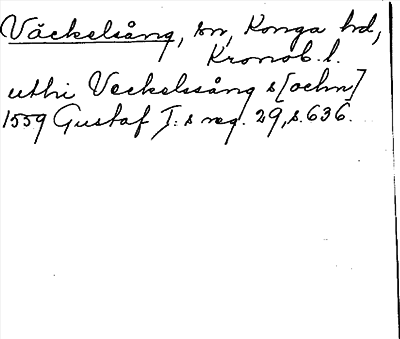 Väckelsång, sn, Konga hd,
Kronob. l.
uthi Veckelssång s[ochn]
1559 Gustaf I:s reg. 29, s. 636.